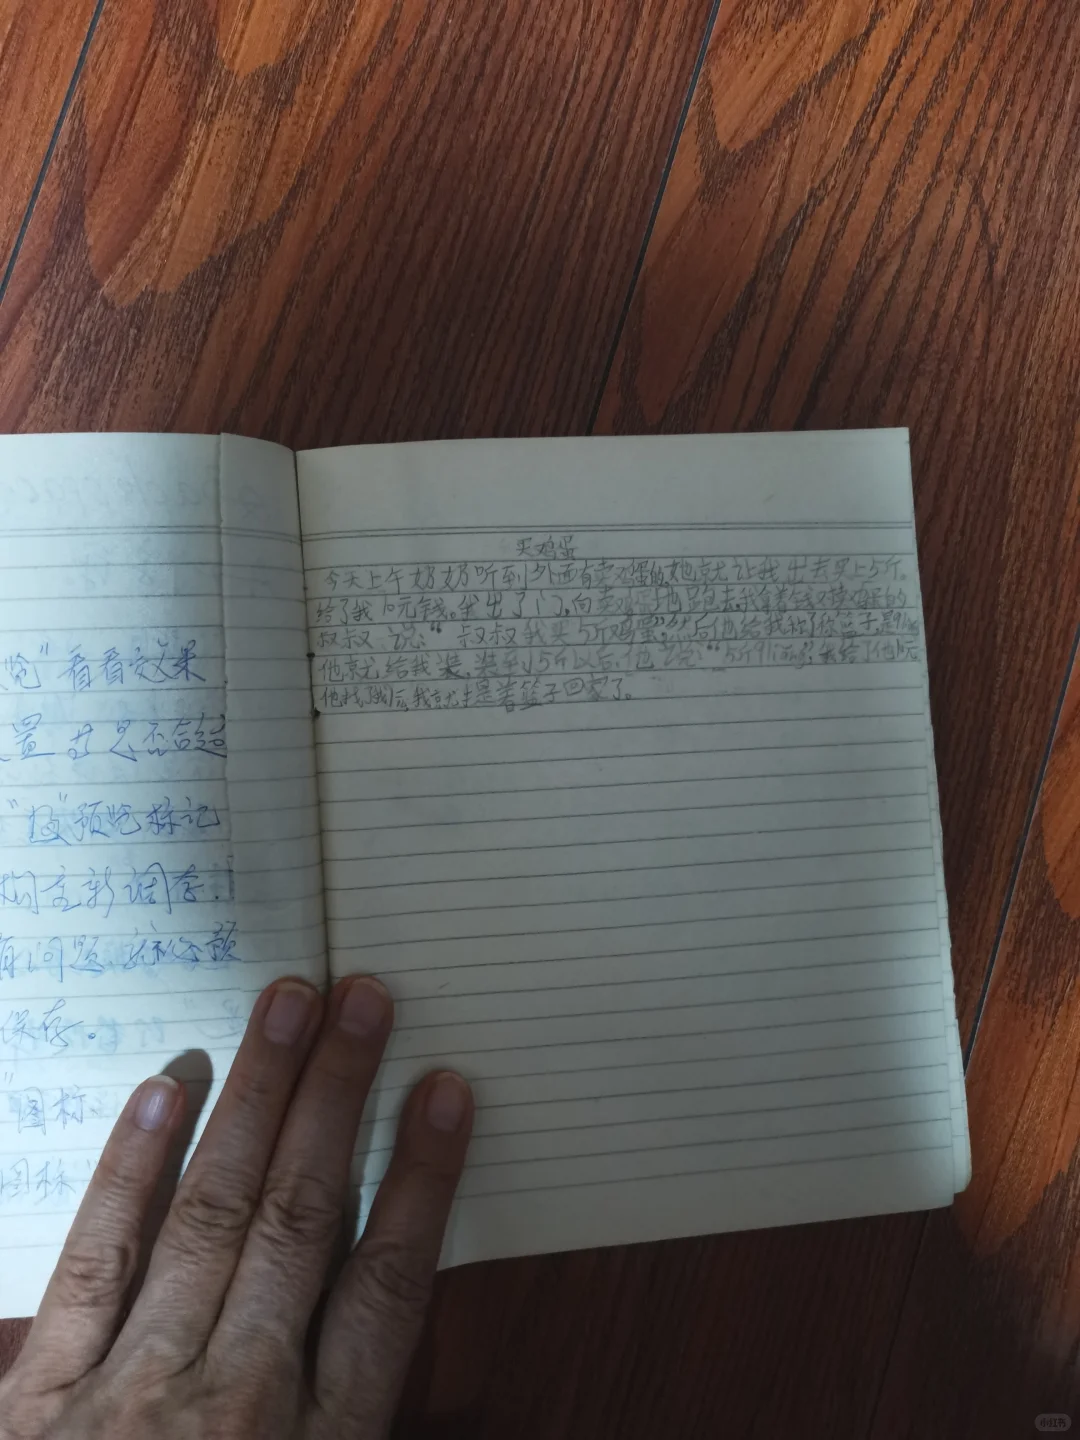 览"看看效果
置 是否合适
"预览标记
新调存
有问题
保存。
"图标
图标"
买鸡蛋
今天上午奶奶听到外面有卖鸡蛋的,她就让我出去买上5斤。
给了我10元钱。我出了门,向卖鸡蛋地跑去,我拿着钱对卖鸡蛋的
叔叔说:"叔叔我买5斤鸡蛋",然后他给我称了称篮子,是
他就给我装,装到5斤以后,他说:"5斤 我给了他10元
他找了我后,我就提着篮子回家了。
小红书